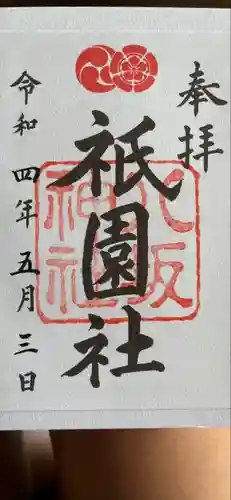 奉拝
祇園社
八坂神社
令和四年五月三日